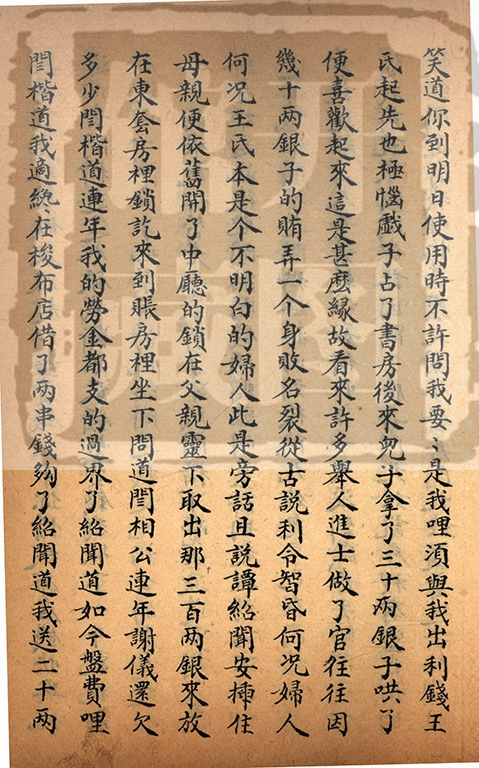 笑道你到明日使用時不許問我要〻是我哩湏與我出利錢王
氏起先也極惱戱子占了書房後來皃子拿了三十兩銀子哄了
便喜歡起來這是甚麽縁故看來許多舉人進士做了官徃徃因
幾十兩銀子的賄弄一个身敗名裂從古説利令智昏何况婦人
何况王氏本是个不明白的婦人此是旁話且説譚紹聞安揷住
母親便依舊開了中廳的鎖在父親靈下取出那三百两銀來放
在東套房裡鎖訖來到賬房裡坐下問道閆相公連年謝儀還欠
多少閆楷道連年我的勞金都支的過界了紹聞道如今盤費哩
閆楷道我適纔在梭布店借了两串錢夠了紹聞道我送二十两